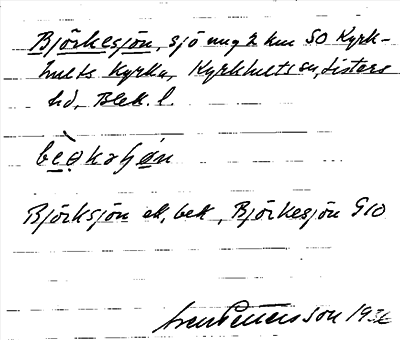 Björkesjön, sjö ung 2 km SO Kyrk-
hults kyrka, Kyrkhults sn, Listers
hd, Blek. l.
Björksjön ek, bek, Björkesjön G10
Pettersson 1932